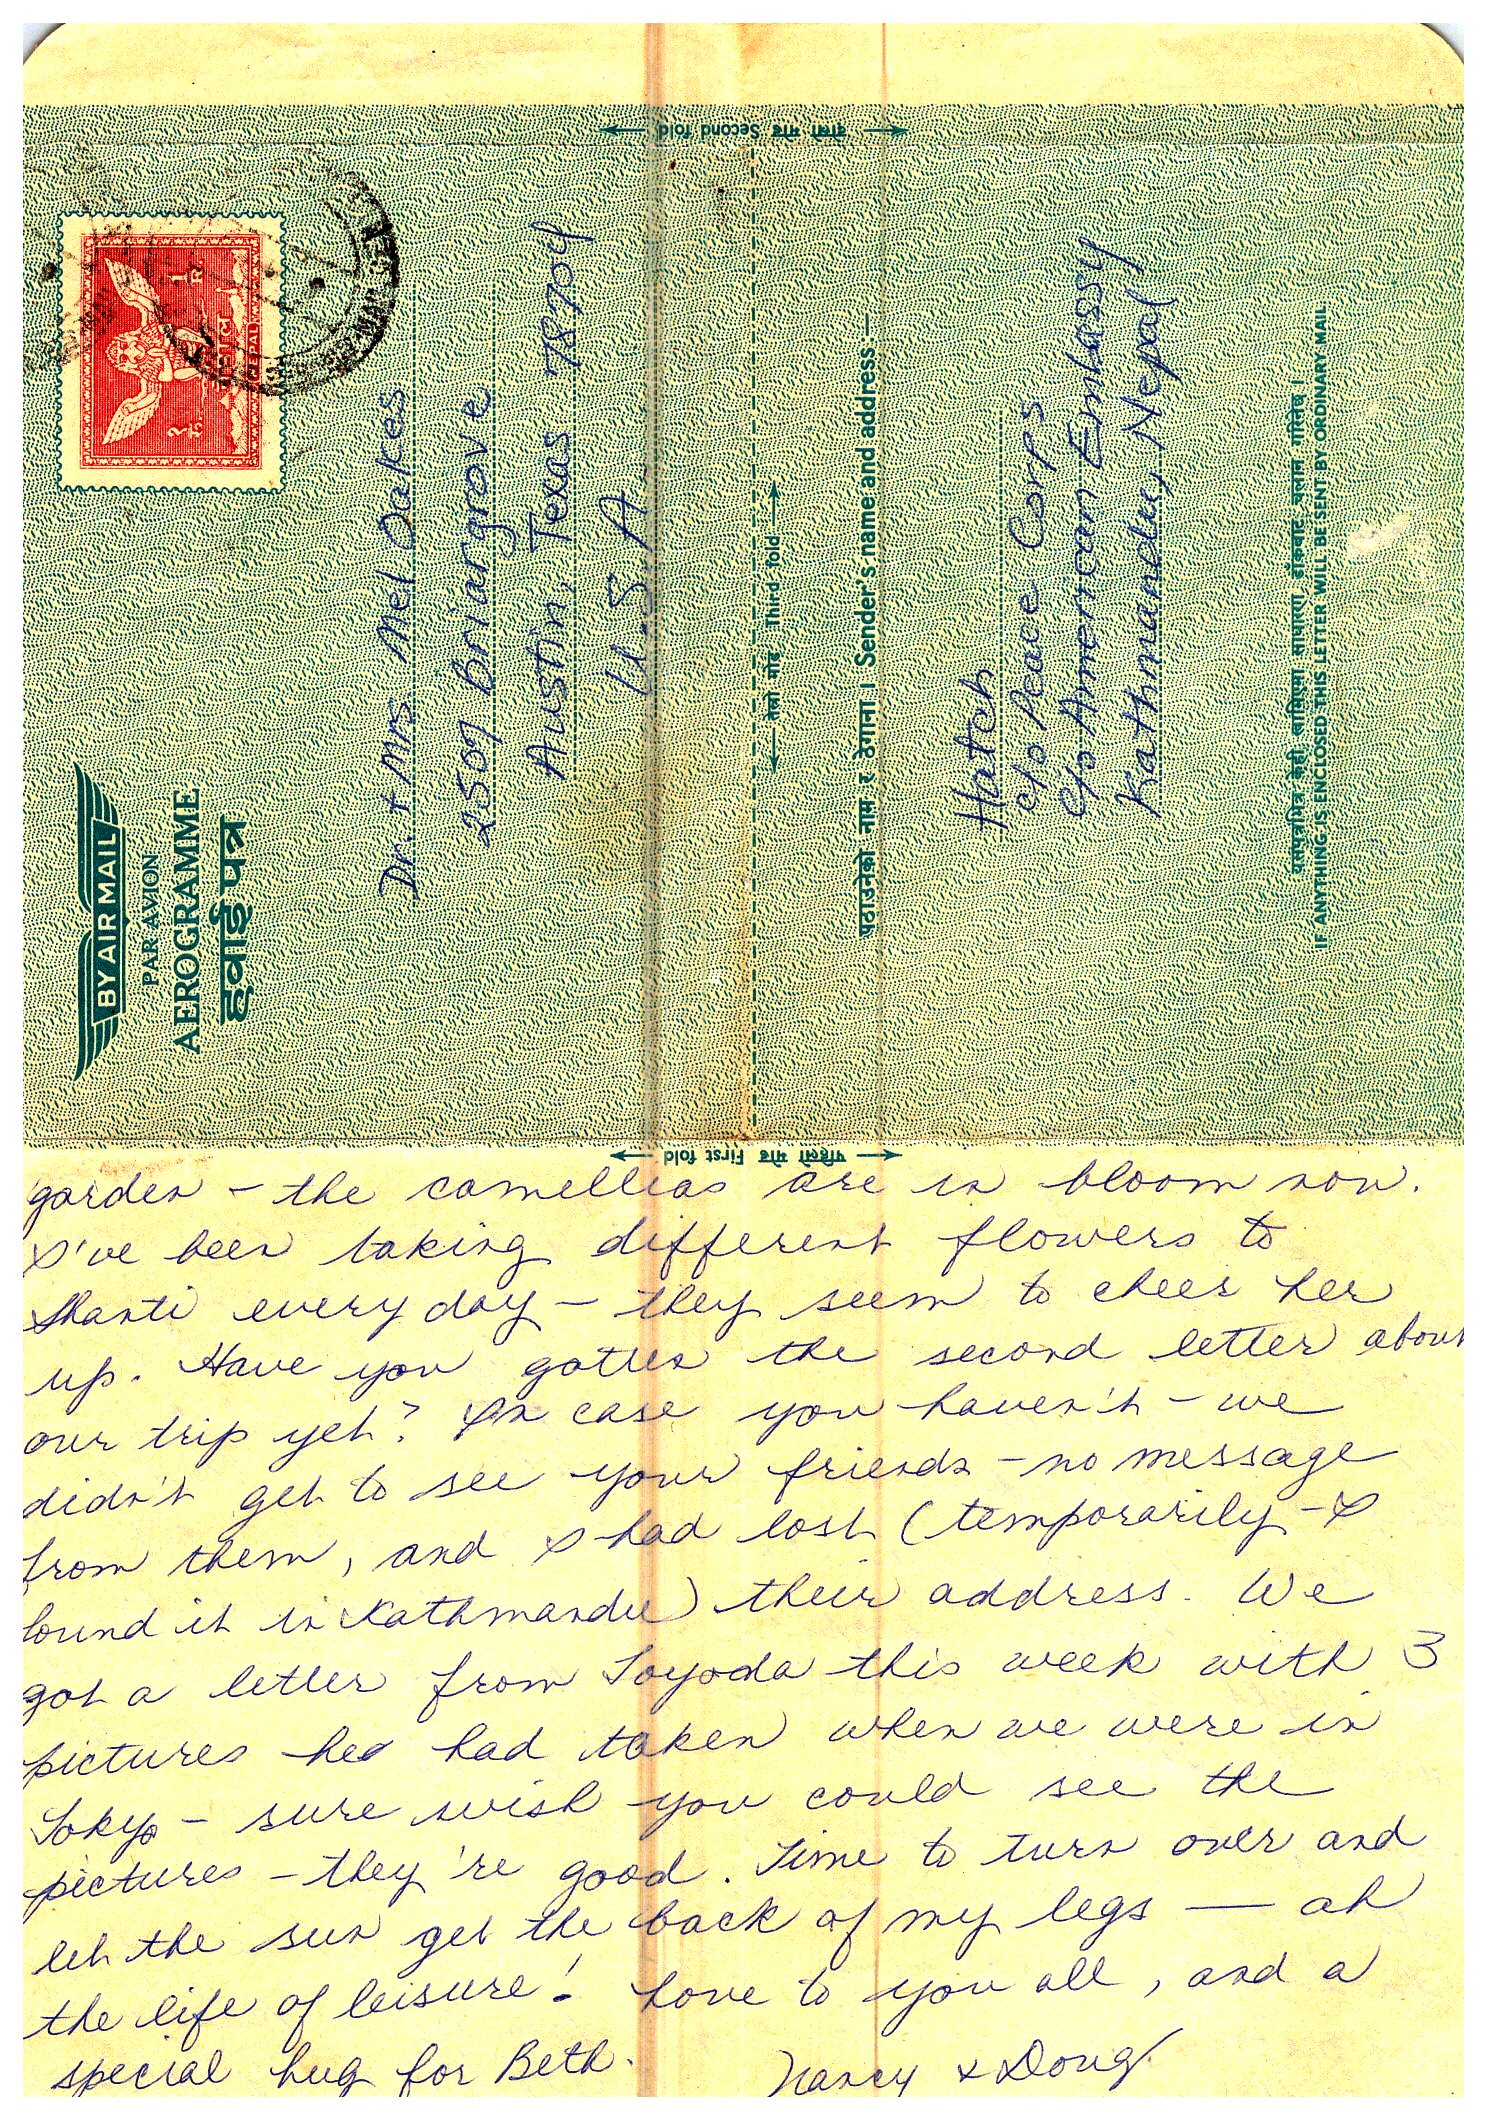 दोस्रो मोड Second fold
BY AIR MAIL
PAR AVION
AEROGRAMME
हवाई पत्र
१ रु
1 R
नेपाल
NEPAL
Dr. + Mrs. Mel Oakes
2507 Briargrove
Austin, Texas 78704
U.S.A.
तेस्रो मोड Third fold
पठाउनेको नाम र ठेगाना । Sender's name and address:—
Hatch
c/o Peace Corps
c/o American Embassy
Kathmandu, Nepal
यसपत्रभित्र केही हालिएमा साधारण डाँकबाट चलान गरिनेछ ।
IF ANYTHING IS ENCLOSED THIS LETTER WILL BE SENT BY ORDINARY MAIL
पहिलो मोड First fold
garden – the camellias are in bloom now.
I've been taking different flowers to
Shanti every day – they seem to cheer her
up. Have you gotten the second letter about
our trip yet? In case you haven't – we
didn't get to see your friends – no message
from them, and I had lost (temporarily – I
found it in Kathmandu) their address. We
got a letter from Toyoda this week with 3
pictures he had taken when we were in
Tokyo – sure wish you could see the
pictures – they're good. Time to turn over and
let the sun get the back of my legs — ah
the life of leisure! Love to you all, and a
special hug for Beth.
Nancy & Doug